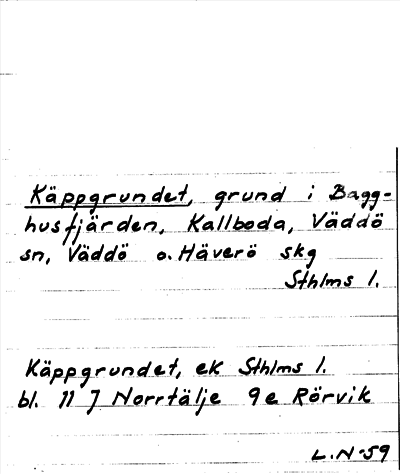 Käppgrundet, grund i Bagg-
husfjärden, Kallboda, Väddö
sn, Väddö o. Häverö skg
Sthlms l.
Käppgrundet, ek Sthlms l.
bl. 11 J Norrtälje 9e Rörvik
L.N-59